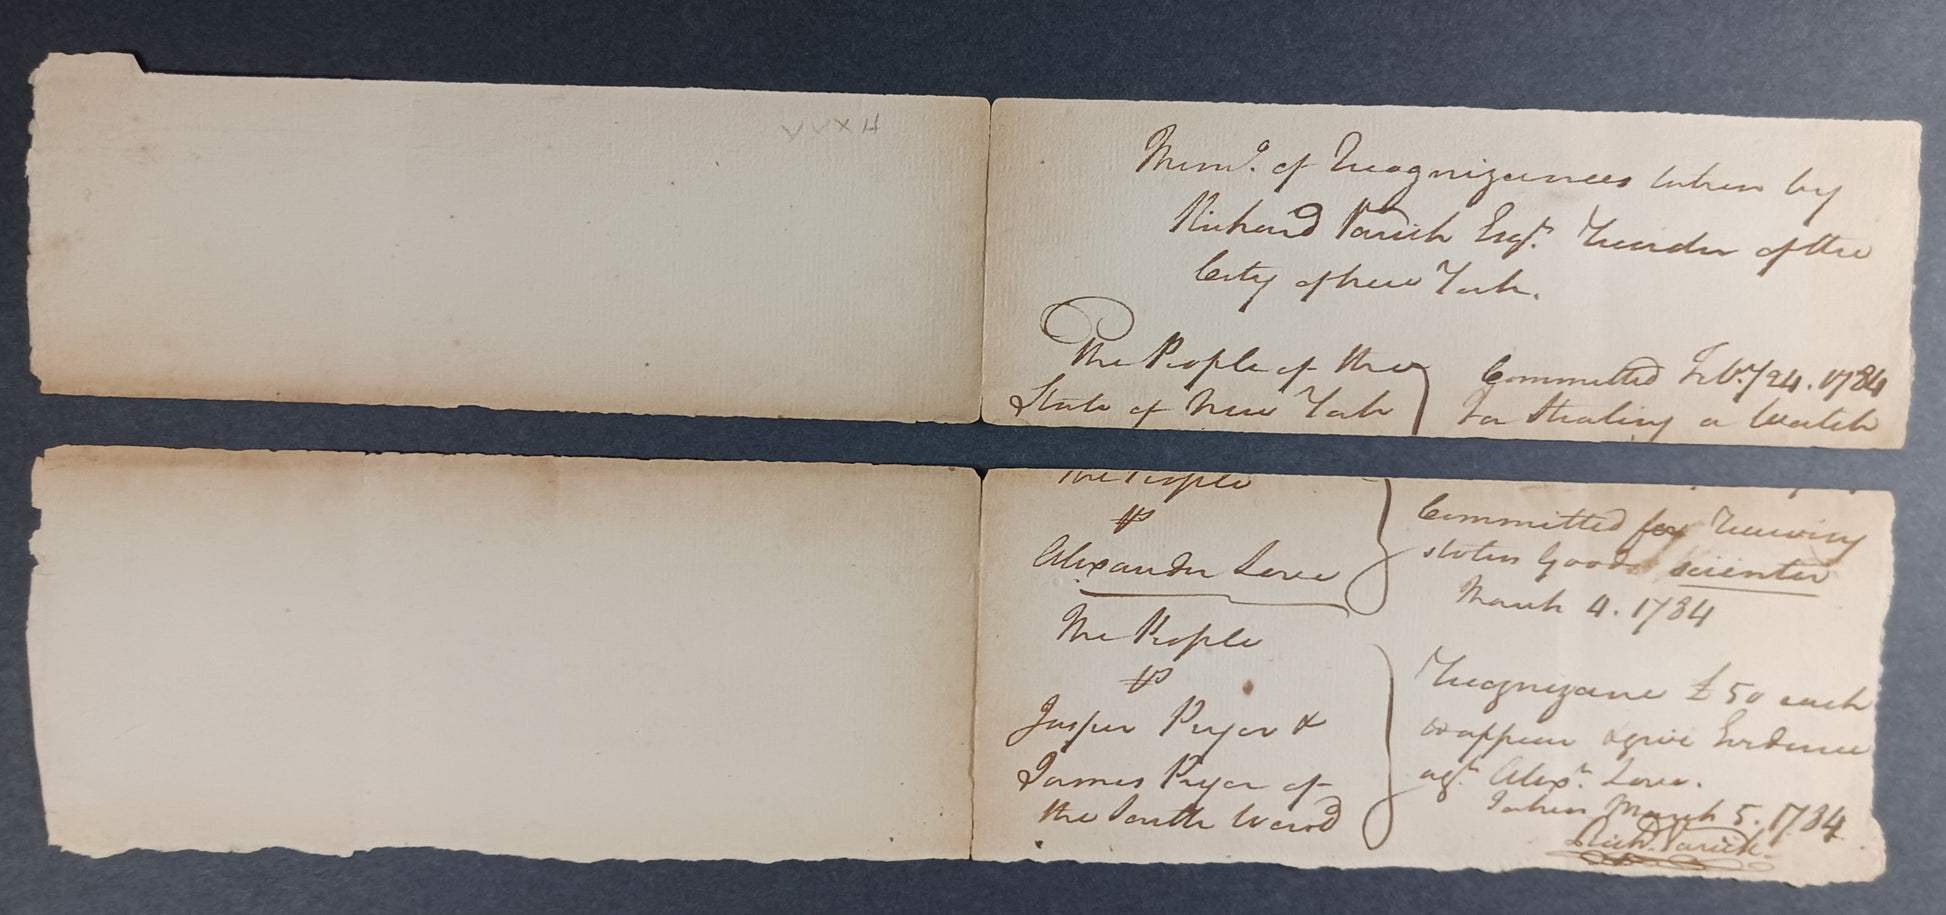 Memd. of Recognizances taken by
Richard Varick Esqr. Recorder of the
City of New York.
The People of the
State of New York
Committed Feby. 24. 1784
for Stealing a Watch
The People
vs
Alexander Love
Committed for Receiving
stolen Goods scienter
March 4. 1784
The People
vs
Jasper Pryer &
James Pryer of
the South Ward
Recognizance £50 each
to appear & give Evidence
agt. Alexr. Love.
Taken March 5. 1784
Richd. Varick.